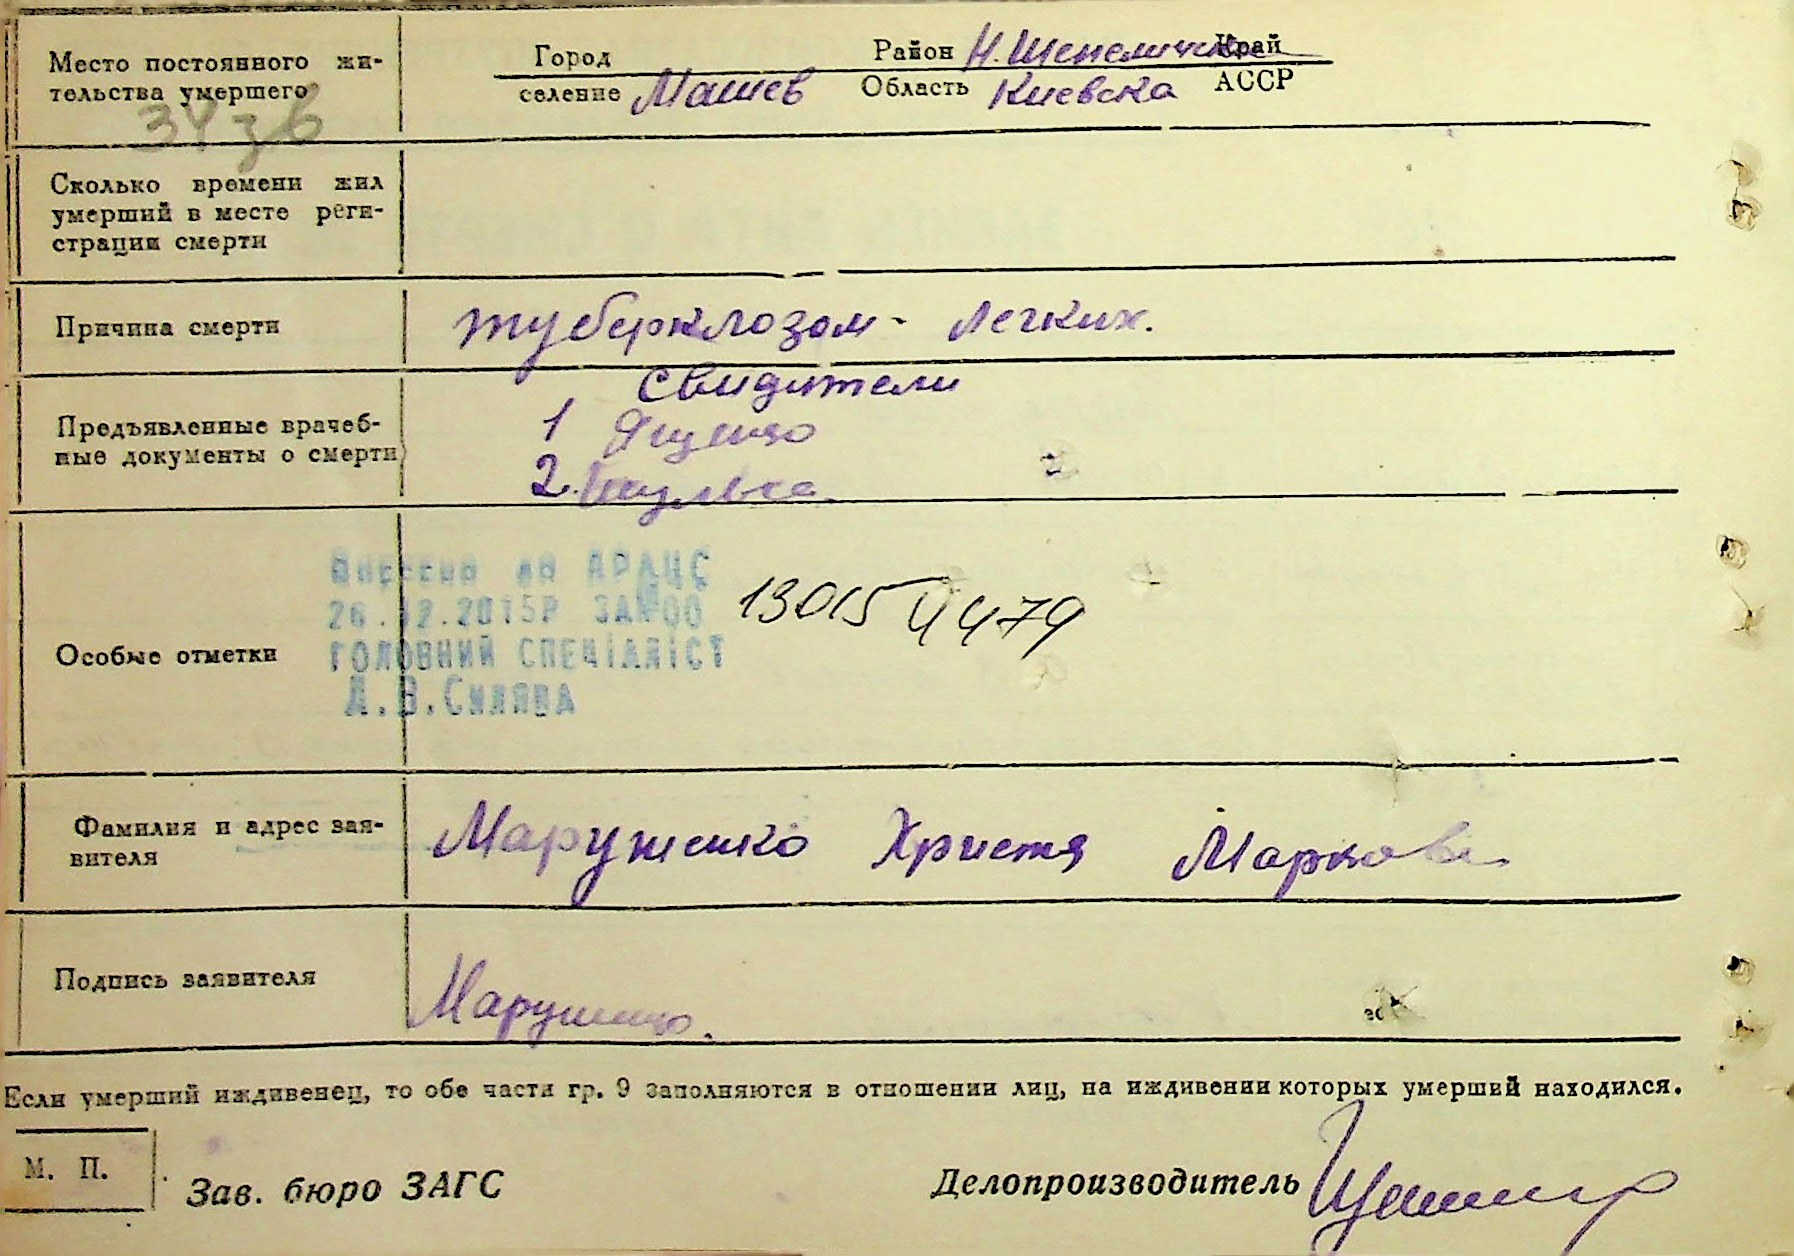 Место постоянного жи-
тельства умершего
Город
Район Н. Шепеличск Край
селение Машев Область Киевска АССР
34 зв
Сколько времени жил
умерший в месте реги-
страции смерти
Причина смерти
туберклозом - легких.
Предъявленные врачеб-
ные документы о смерти
свидители
1 Ященко
2.
Особые отметки
Внесено до АРАЦС
26.12.2015Р ЗА№00
ГОЛОВНИЙ СПЕЦІАЛІСТ
Д.В.Силява
13015 4479
Фамилия и адрес зая-
вителя
Марушенко Христя Маркова
Подпись заявителя
Марушенко.
Если умерший иждивенец, то обе части гр. 9 заполняются в отношении лиц, на иждивении которых умерший находился.
М. П.
Зав. бюро ЗАГС
Делопроизводитель